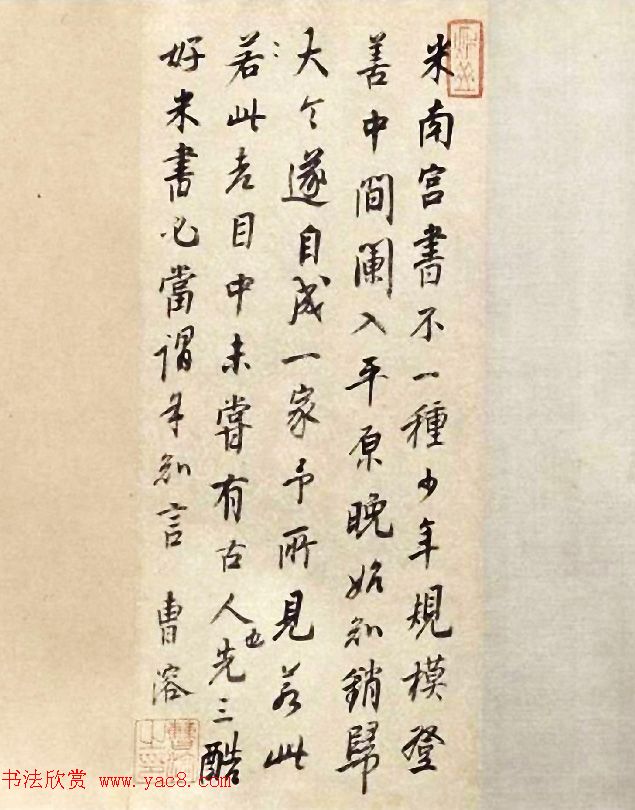 米南宮書不一種少年規模登
善中間闌入平原晚始知銷歸
大令遂自成一家予所見若此
若此老目中未嘗有古人也先三酷
好米書必當謂知言 曹溶
曹溶之印
书法欣赏 www.yac8.com